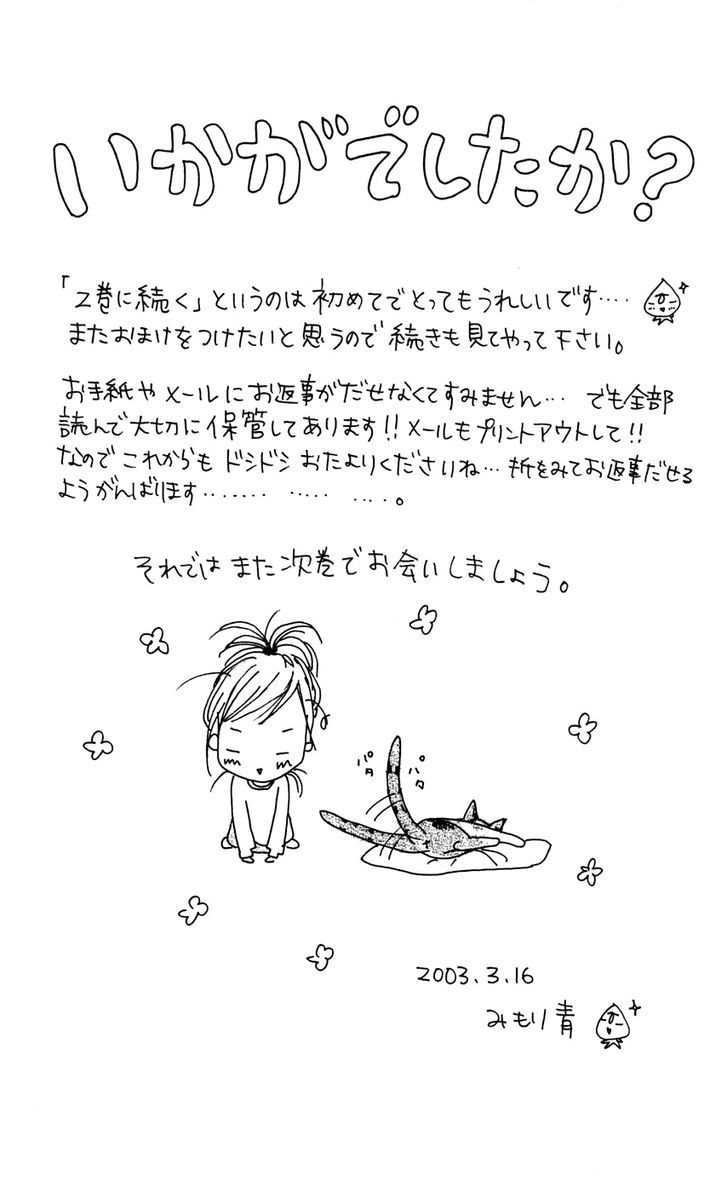 いかがでしたか?
「2巻に続く」というのは初めてでとってもうれしいです‥‥
またおまけをつけたいと思うので続きも見てやって下さい。
お手紙やメールにお返事がだせなくてすみません… でも全部
読んで大切に保管してあります!!メールもプリントアウトして!!
なのでこれからもドシドシおたよりくださいね… 折をみてお返事だせる
ようがんばります‥‥‥ ‥‥‥ ‥‥。
それではまた次巻でお会いしましょう。
パタ
パタ
2003.3.16
みもり青